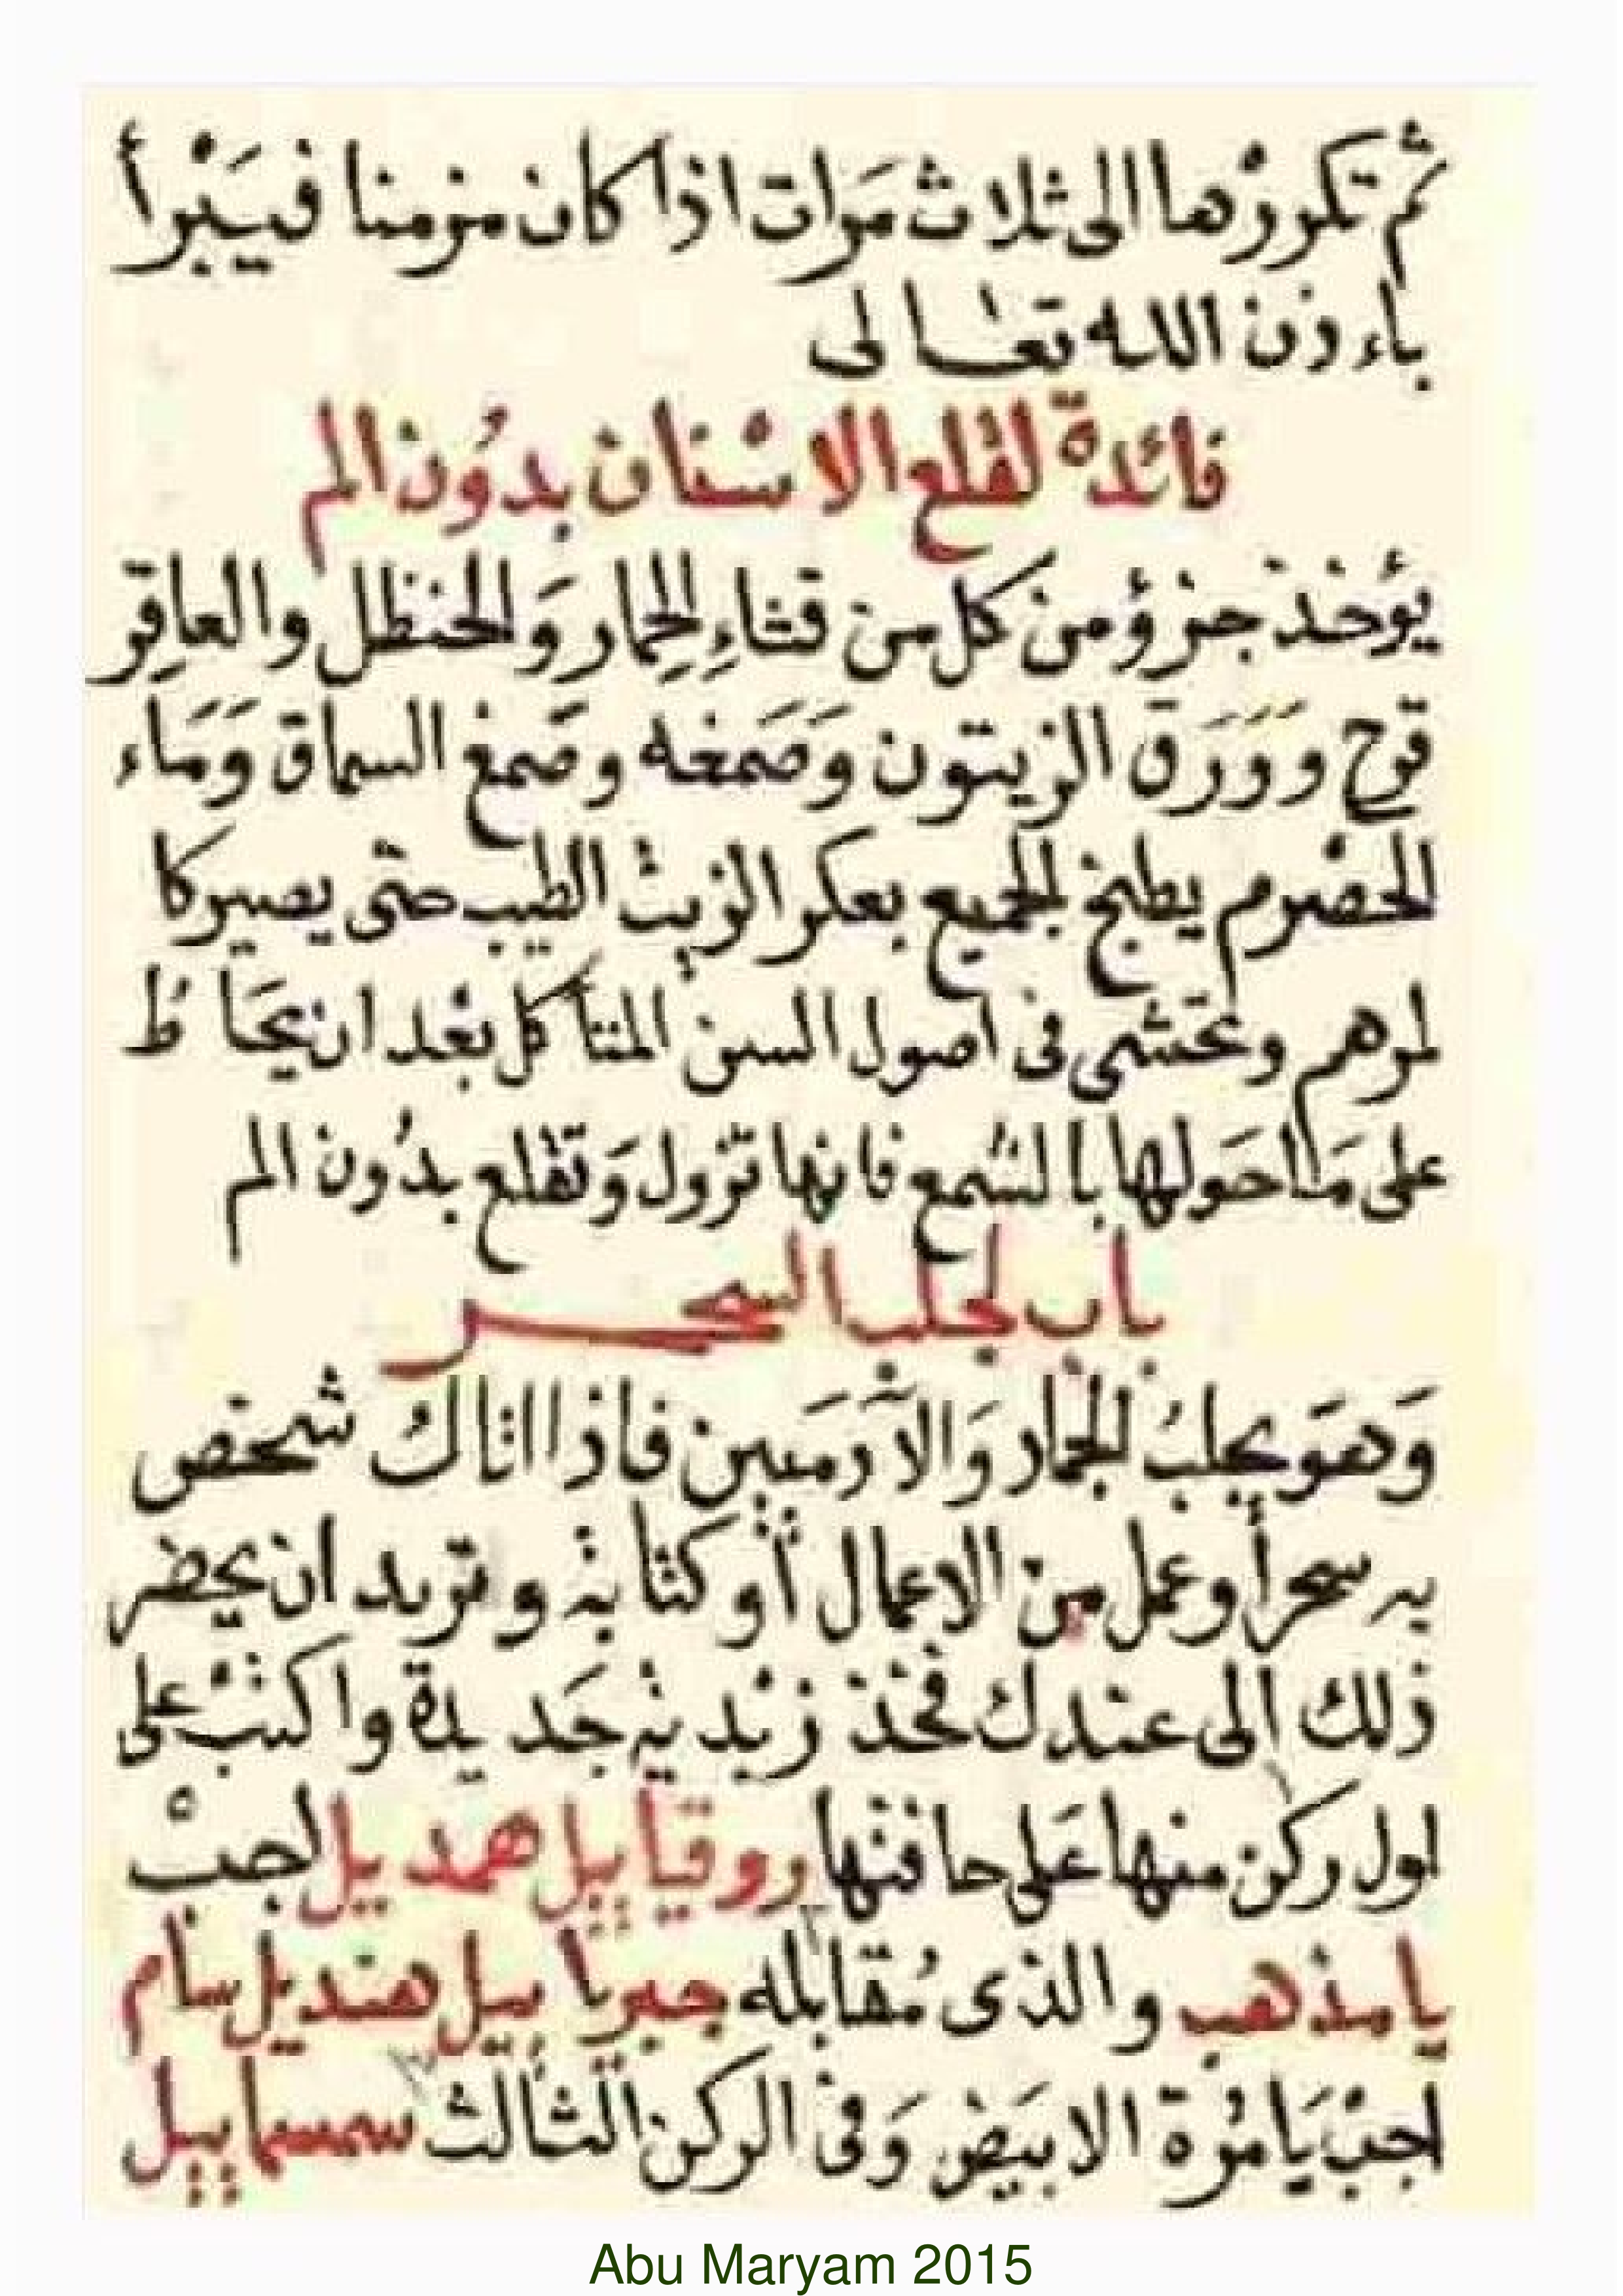 ثم تكررْها الى ثلاث مَرات اذا كان مزمنا فيَبْرأ
باءذن الله تعالى
فائدة لقلع الاسْنان بدُون الم
يؤخذ جزؤ من كل من قثاءِ الحِمار وَالحنظل والعاقِر
قرح ووَرَق الزيتون وَصَمغه وصَمغ السماق وَمَاء
الحصْرم يطبخ الجميع بعكر الزيت الطيب حتى يصير كا
لمرهم وتحَشى فى اصول السن المتأكل بعْد ان يحَاط
على مَا حَولها بالشمع فانها تزول وَتقلع بدُون الم
باب لجلب السحر
وَهوَ يجلبُ الجمار وَالآدمَيين فاذا اتاك شخص
به سحر أو عمل من الاعمال أو كتابة وتريد ان يحضر
ذلك الى عندك فخذ زبْدية جَديدة واكتبْ على
اول ركن منها عَلى حافتها روقيائيل همديل اجبْ
يا مذهب والذى مُقابله جبريائيل هنديل سام
اجبْ يَا مُرة الابيَض وَفى الركن الثالث سمسمائيل
Abu Maryam 2015